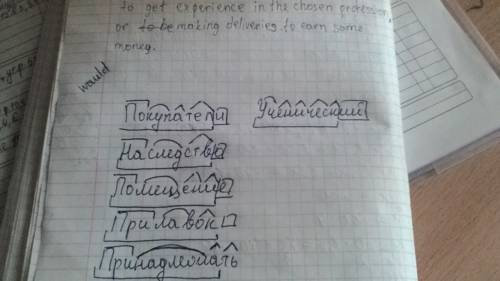 to get experience in the chosen profession
or to be making deliveries to earn some
money.
would
Покупатели Ученический
Наследство
Помещение
Прилавок
Принадлежать